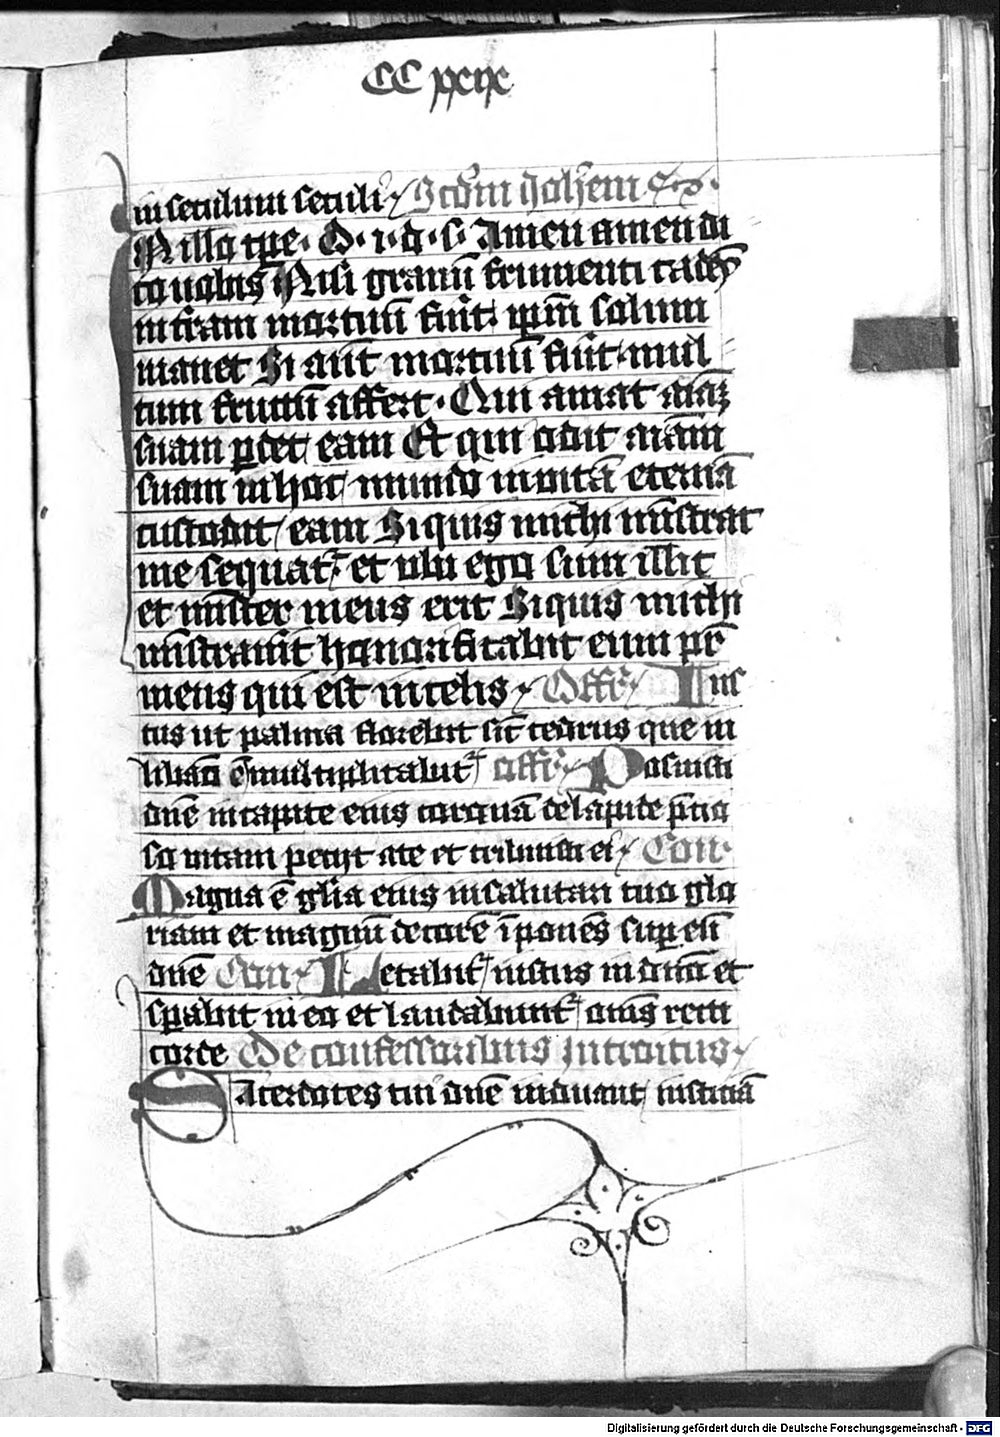 CC xcix
in seculum seculi Scdm Johem
N illo tpe · D · i · d · s · Amen amen di
co uobis Nisi granu frumenti cades
in tram mortuu fuit ipm solum
manet Si aut mortuu fuit mul
tum fructu affert · Qui amat aiaz
suam pdet eam Et qui odit aiam
suam in hoc mundo in vita eterna
custodit eam Siquis michi mistrat
me sequat et ubi ego sum illic
et mister meus erit Siquis michi
mistrauit honorificabit eum pr
meus qui est in celis Offr Jus
tus ut palma florebit sic cedrus que in
libano e multiplicabit offr Posuisti
dne in capite eius corona de lapide pcio
so vitam pecijt a te et tribuisti ei Con
Magna e glia eius in salutari tuo glo
riam et magnu decore ipones sup eu
dne Con Letabit iustus in dno et
spabit in eo et laudabunt oms recti
corde De confessoribus Introitus
Sacerdotes tui dne induant iusticia
Digitalisierung gefördert durch die Deutsche Forschungsgemeinschaft - DFG